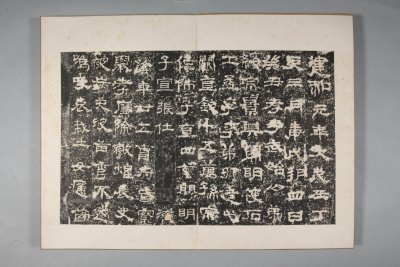 建和元年大歲在丁
亥三月庚戌朔四日
癸丑孝子武始公弟
綏宗景興開明使石
工孟孚李弟卯造此
闕直錢十五萬孫宗
作師子直四萬開明
子宣張仕濟
陰年廿五曹府君察
舉孝廉除敦煌長史
被病夭歿苗秀不遂
嗚呼哀哉士女痛傷